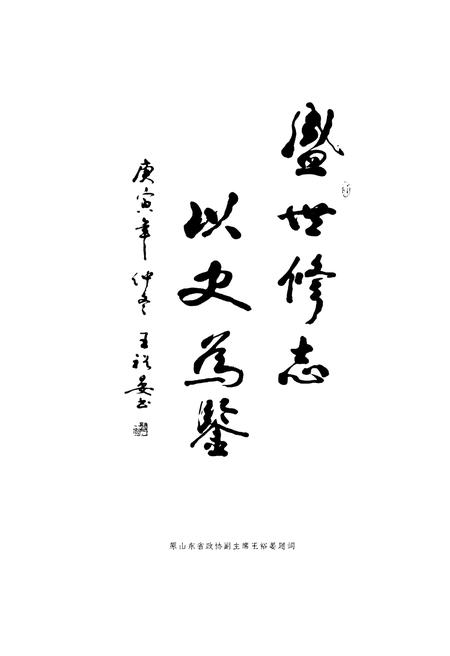 盛世修志
以史为鉴
庚寅年仲冬 王裕晏书
原山东省政协副主席王裕晏题词